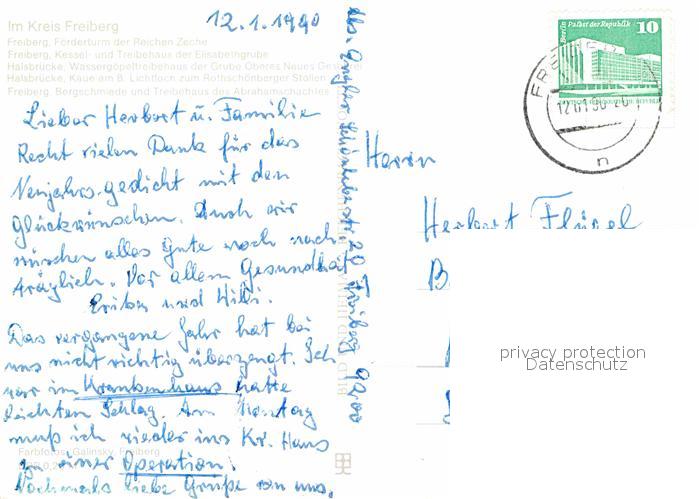 Im Kreis Freiberg
Freiberg, Förderturm der Reichen Zeche
Freiberg, Kessel- und Treibehaus der Elisabethgrube
Halsbrücke, Wassergöpeltreibehaus der Grube Oberes Neues Ges
Halsbrücke, Kaue am 8. Lichtloch zum Rothschönberger Stollen
Freiberg, Bergschmiede und Treibehaus des Abrahamschachtes
12.1.1990
Lieber Herbert u. Familie
Recht vielen Dank für das
Neujahrsgedicht mit den
Glückwünschen. Auch wir
wünschen alles Gute noch nach-
träglich. Vor allem Gesundheit
Erika und Willi.
Das vergangene Jahr hat bei
uns nicht richtig überzeugt. Ich
war im Krankenhaus hatte
leichten Schlag. Am Montag
muß ich wieder ins Kr. Haus
zu einer Operation.
Nochmals liebe Grüße von uns.
Farbfotos: Galinsky, Freiberg
Abs. Engler Schönlebestr. 20 Freiberg 9200
Berlin Palast der Republik 10
DEUTSCHE DEMOKRATISCHE REPUBLIK
12.01.90
n
Herrn
Herbert Flügel
B
privacy protection
Datenschutz